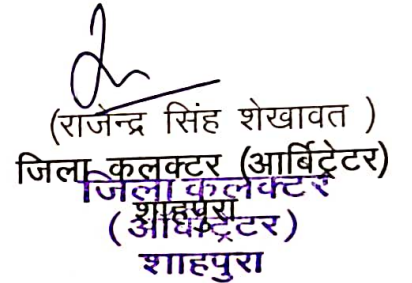 (राजेन्द्र सिंह शेखावत )
जिला कलक्टर (आर्बिट्रेटर)
जिला कलक्टर
शाहपुरा
(आर्बिट्रेटर)
शाहपुरा